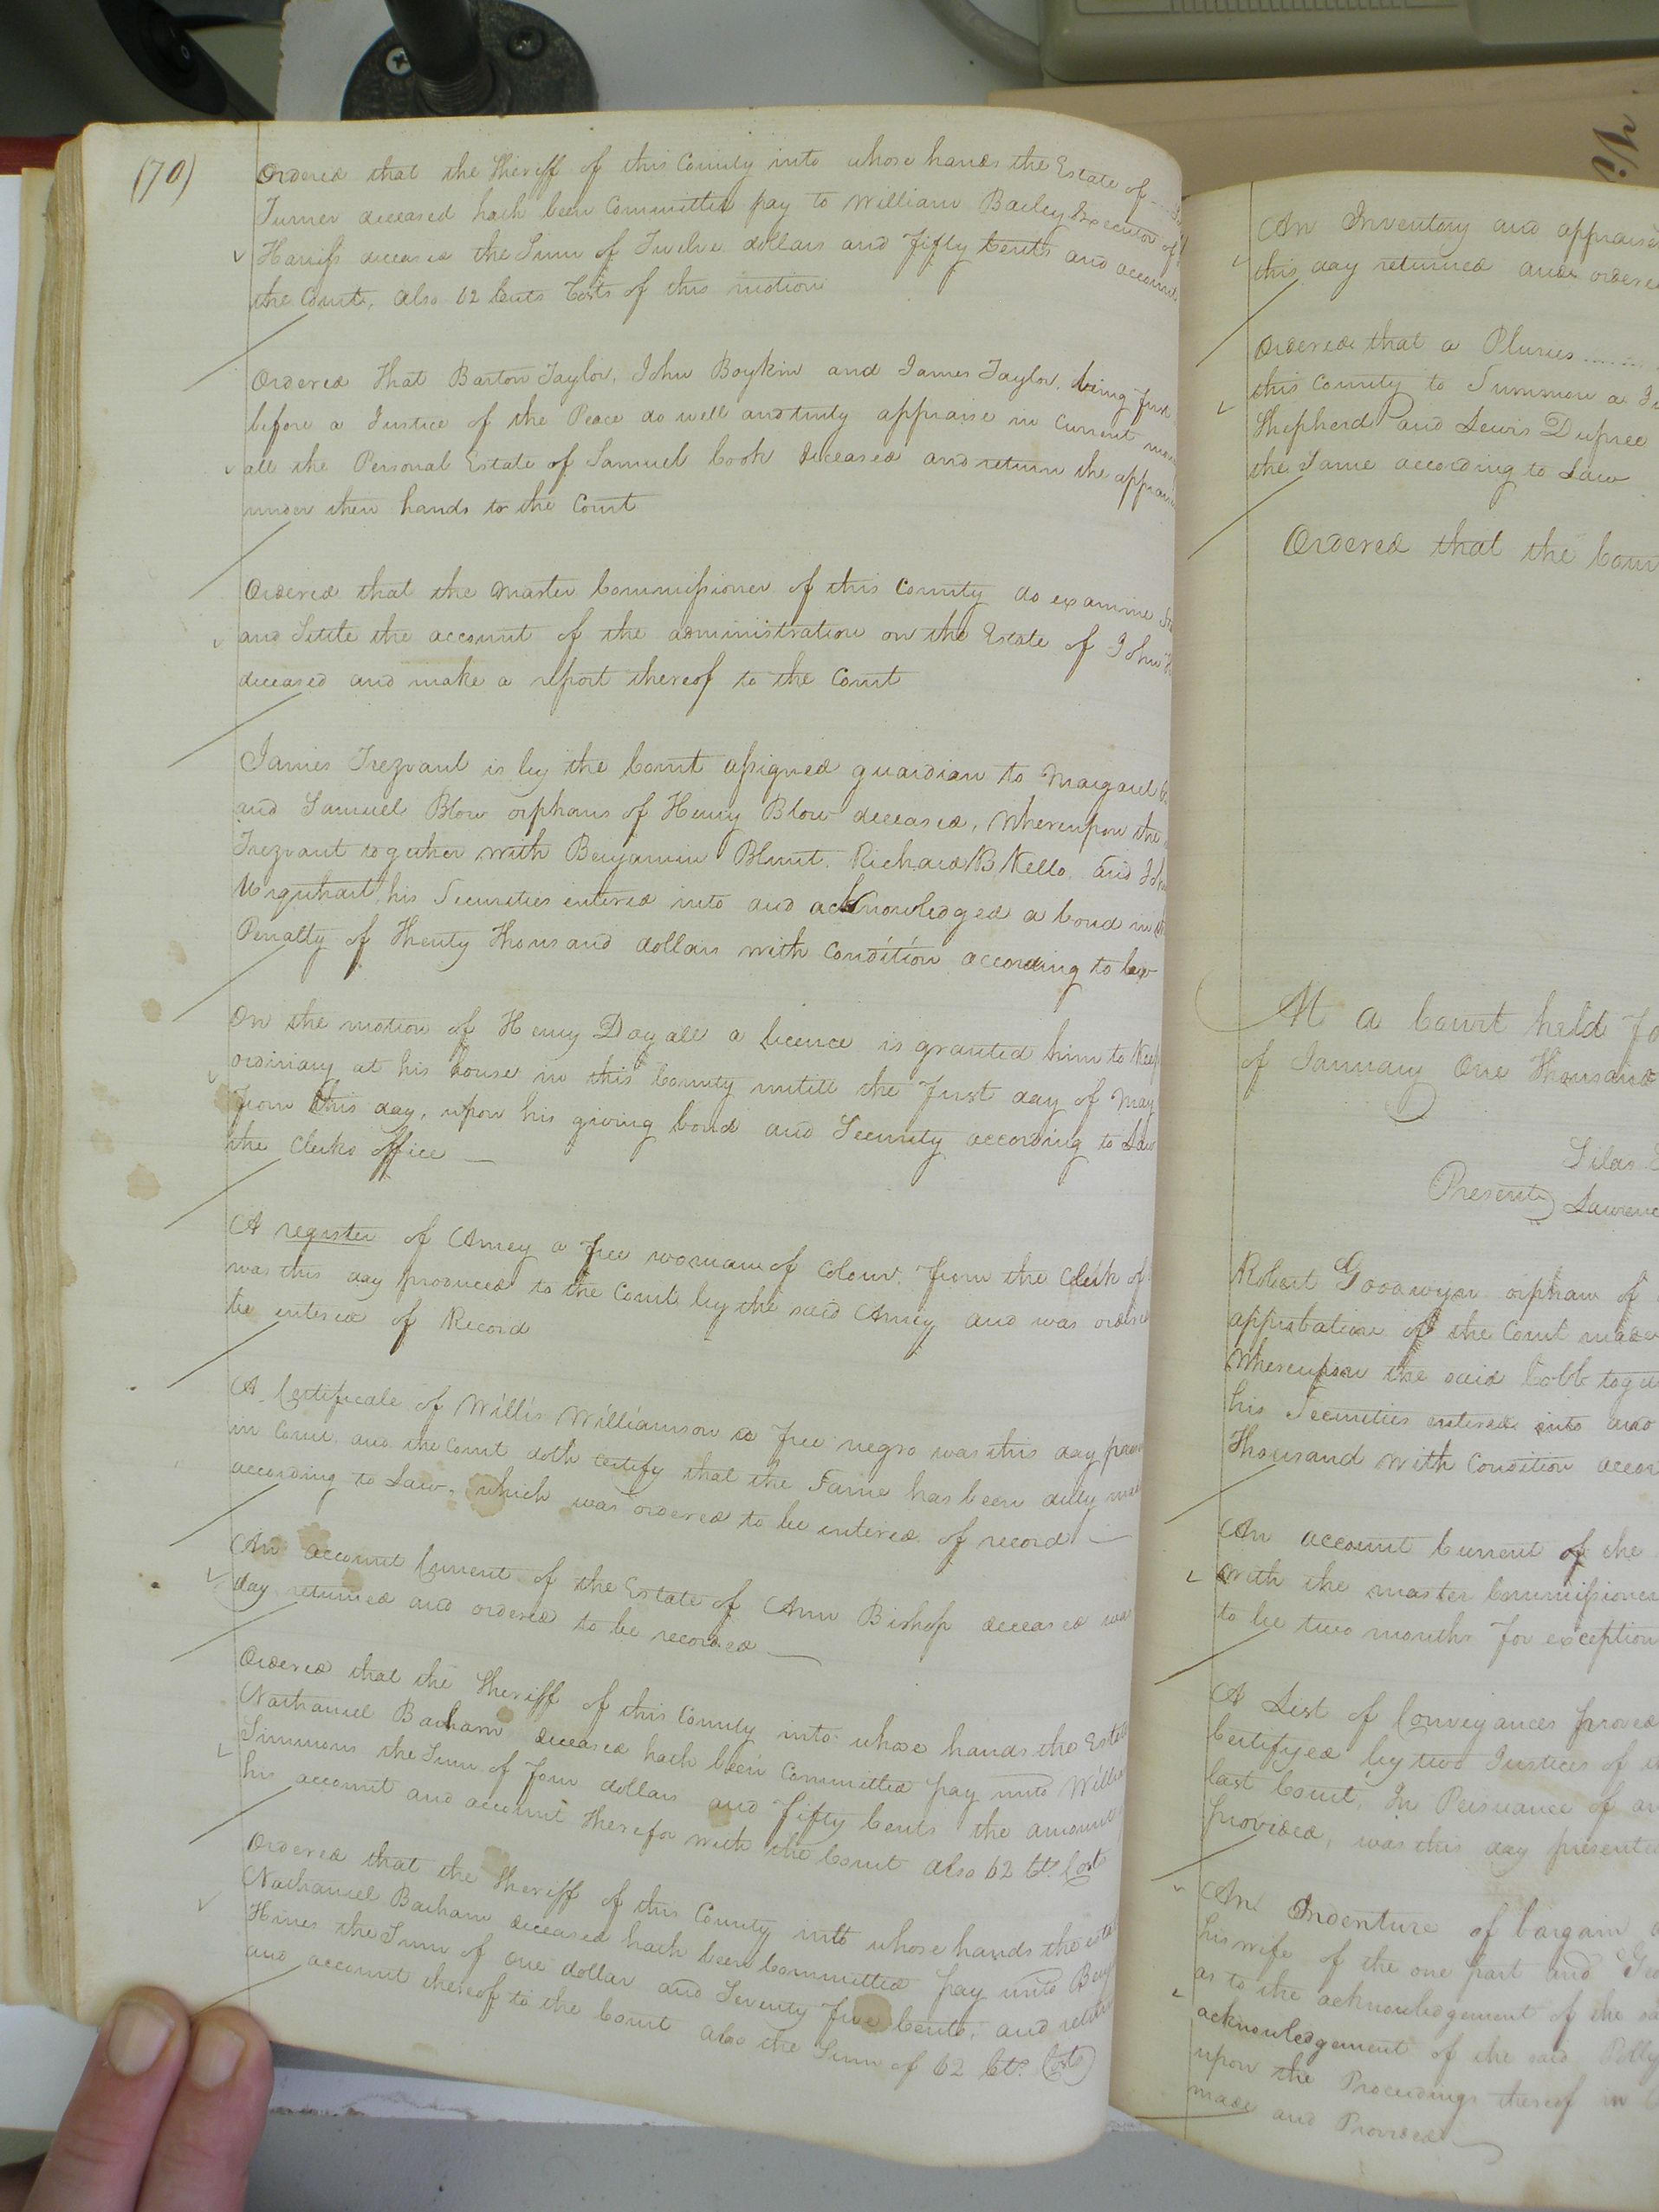 (70)
Ordered that the Sheriff of this County into whose hands the Estate of
Turner deceased hath been Committed pay to William Bailey Executor of
Hariss deceased the Sum of Twelve dollars and Fifty Cents and account
the Court, also 62 Cents Costs of this motion
Ordered That Barton Taylor, John Boykin and James Taylor, being first
before a Justice of the Peace do well and truly appraise in Current
all the Personal Estate of Samuel Cook deceased and return the
under their hands to the Court
Ordered that the Master Commissioner of this County do examine
and Settle the account of the administration on the Estate of John
deceased and make a report thereof to the Court
James Trezvant is by the Court assigned guardian to Margaret
and Samuel Blow orphans of Henry Blow deceased, Whereupon the
Trezvant together with Benjamin Blunt, Richard B Kello, and
Urquhart, his Securities entered into and acknowledged a bond in
Penalty of Twenty Thousand dollars with Condition according to law
On the motion of Henry Dogall a licence is granted him to Keep
ordinary at his house in this County untill the First day of May
From this day, upon his giving bond and Security according to Law
the Clerks office —
A register of Amey a free woman of Colour, from the Clerk of
was this day produced to the Court by the said Amey and was
be entered of Record
A Certificate of Willis Williamson a Free negro was this day
in Court, and the Court doth certify that the Same has been duly
according to Law, which was ordered to be entered of record —
An account Current of the Estate of Ann Bishop deceased was
day returned and ordered to be recorded —
Ordered that the Sheriff of this County into whose hands the
Nathaniel Barham deceased hath been Committed pay unto
Simmons the Sum of Four dollars and Fifty Cents the amount
his account and account Therefor with the Court also 62 Cts Costs
Ordered that the Sheriff of this County into whose hands the
Nathaniel Barham deceased hath been Committed pay unto
Hines the Sum of one dollar and Seventy Five Cents, and
and account thereof to the Court also the Sum of 62 Cts. Costs
An Inventory and
this day returned and
Ordered that a Pluries
this County to Summon a
Shepherd and Lewis Dupree
the Same according to Law
Ordered that the
At a Court held
of January One Thousand
Silas
Present) Lawrence
Robert Goodwyn orphan of
approbation of the Court
Whereupon the said Cobb
his Securities entered into and
Thousand with Condition
An account Current of the
with the master Commissioner
to be two months for exception
A List of Conveyances proved
Certifyed by two Justices of
last Court, In Persuance of
provided, was this day
An Indenture of bargain
his wife of the one part and
as to the acknowledgement of the
acknowledgement of the said Polly
upon the Proceedings thereof in
made and Provided